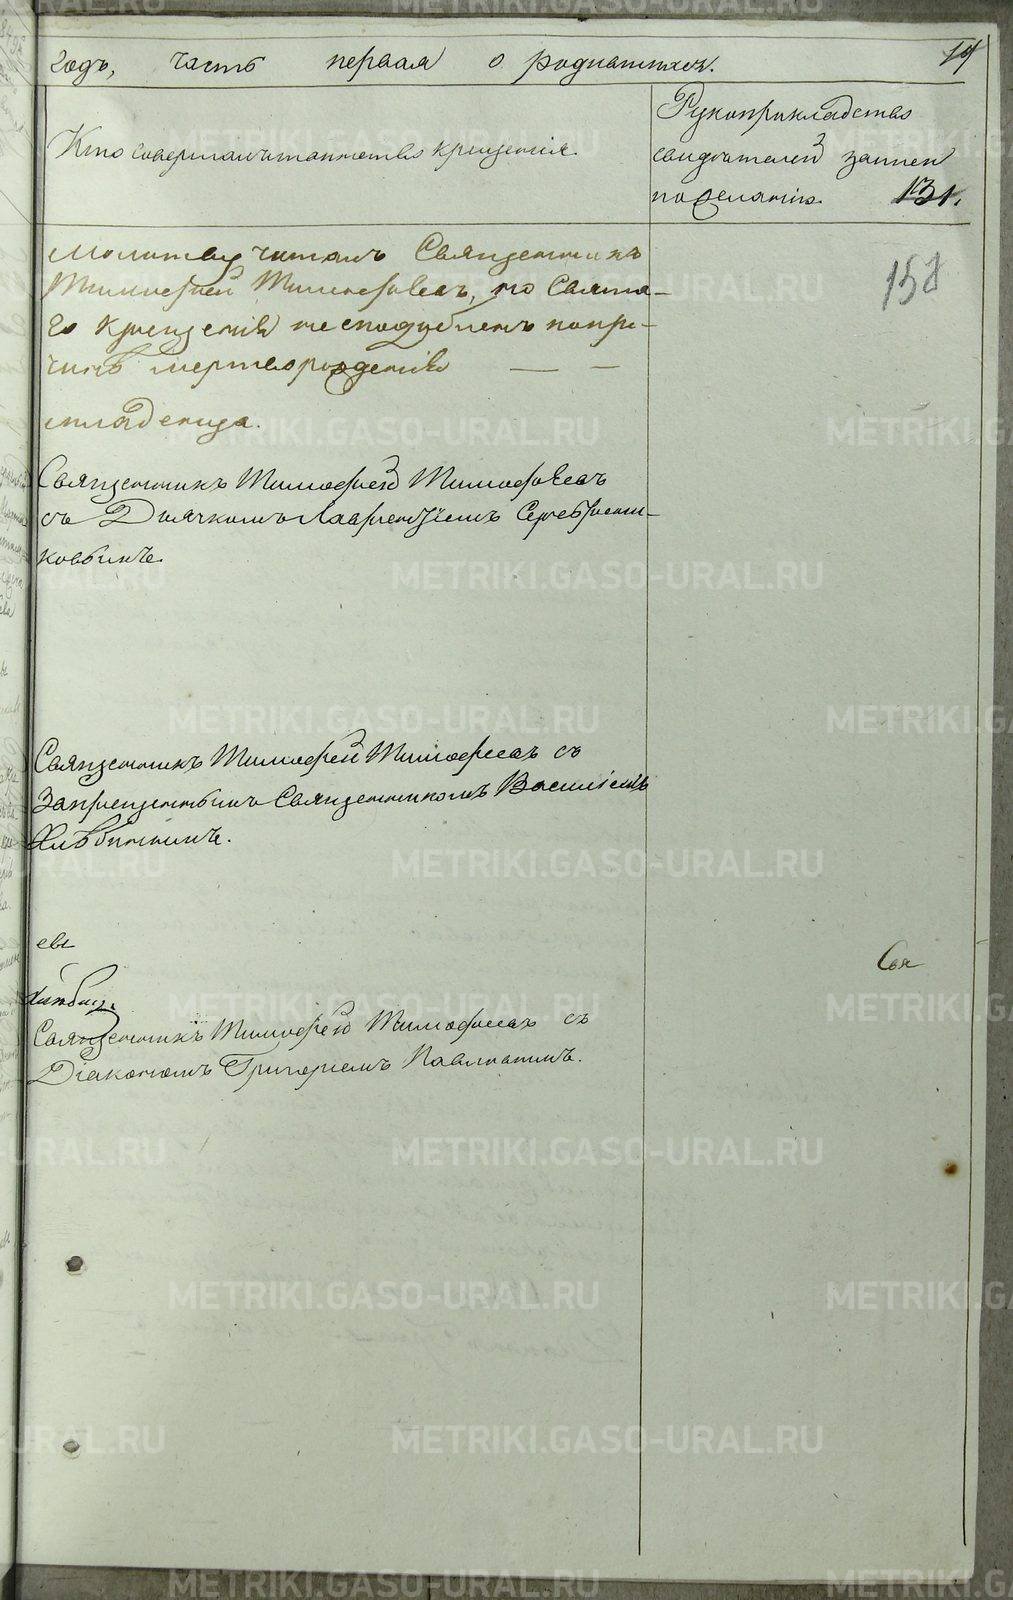 годъ, часть первая о родившихся. 19
Кто совершалъ таинство крещенія.
Рукоприкладство
свидѣтелей записи
по желанію. 131.
158
Молитву читалъ Священникъ
Тимоѳей Тимоѳеевъ, но Свята-
го Крещенія не сподобленъ по при-
чинѣ мерторожденія — —
младенца.
Священникъ Тимофей Тимофеевъ
съ Дьячкомъ Лаврентіемъ Серебрени-
ковымъ.
Священникъ Тимофей Тимофеевъ съ
Запрещеннымъ Священникомъ Василіемъ
евы
Свя
Священникъ Тимофей Тимофеевъ съ
Діакономъ Григоріемъ
METRIKI.GASO-URAL.RU